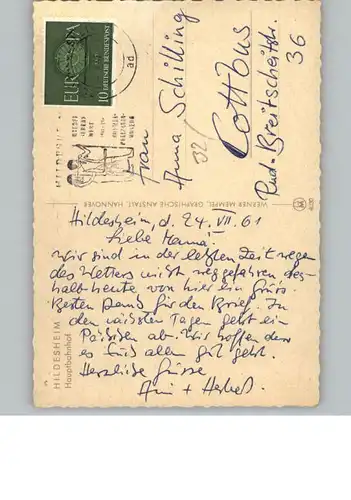 EUROPA
10 DEUTSCHE BUNDESPOST
HILDESHEIM
Frau
Anna Schilling
32/
Cottbus
Rud-Breitscheidstr.
36
WERNER MEMPEL, GRAPHISCHE ANSTALT, HANNOVER
Hildesheim, d. 24. VII. 61
Liebe Mama!
Wir sind in der letzten Zeit wegen
des Wetters nicht weggefahren des-
halb heute von hier ein Gruss.
Besten Dank für den Brief. In
den nächsten Tagen geht ein
Päckchen ab. Wir hoffen dass
es Euch allen gut geht.
Herzliche Grüsse
+ Herbert
HILDESHEIM
Hauptbahnhof